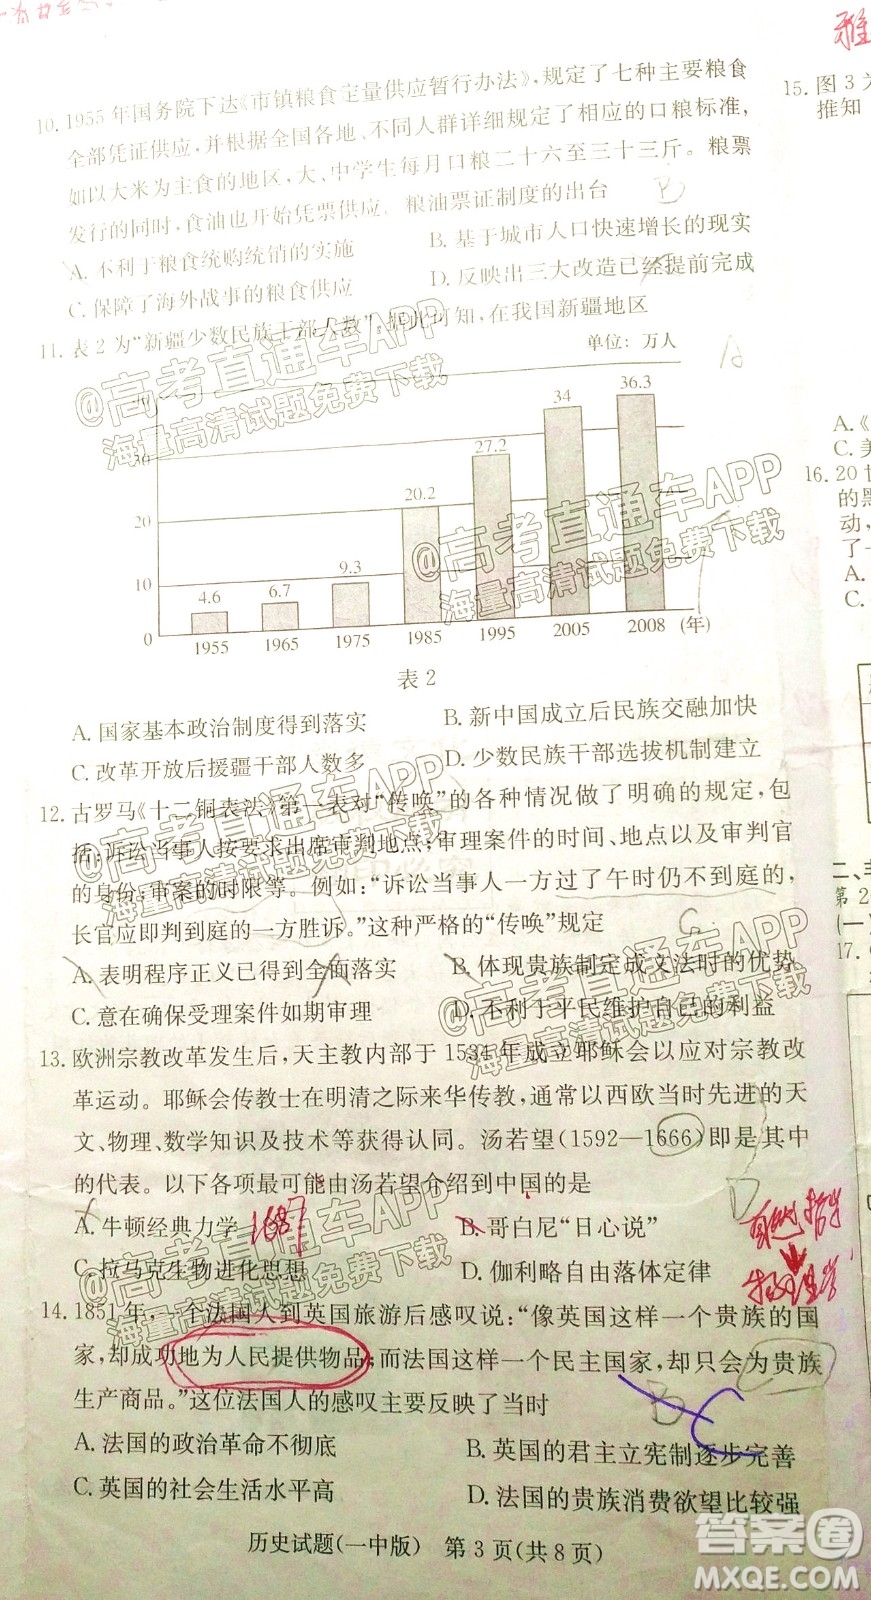 雅
10. 1955 年国务院下达《市镇粮食定量供应暂行办法》,规定了七种主要粮食
全部凭证供应,并根据全国各地、不同人群详细规定了相应的口粮标准,
如以大米为主食的地区,大、中学生每月口粮二十六至三十三斤。粮票
发行的同时,食油也开始凭票供应。粮油票证制度的出台
B
A. 不利于粮食统购统销的实施
B. 基于城市人口快速增长的现实
C. 保障了海外战事的粮食供应
D. 反映出三大改造已经提前完成
11. 表 2 为“新疆少数民族干部人数”,据此可知,在我国新疆地区
A
单位：万人
30
20
10
0
4.6
6.7
9.3
20.2
27.2
34
36.3
1955
1965
1975
1985
1995
2005
2008
(年)
表 2
A. 国家基本政治制度得到落实
B. 新中国成立后民族交融加快
C. 改革开放后援疆干部人数多
D. 少数民族干部选拔机制建立
12. 古罗马《十二铜表法》第一表对“传唤”的各种情况做了明确的规定,包
括:诉讼当事人按要求出席审判地点;审理案件的时间、地点以及审判官
的身份;审案的时限等。例如:“诉讼当事人一方过了午时仍不到庭的,
长官应即判到庭的一方胜诉。”这种严格的“传唤”规定
C
A. 表明程序正义已得到全面落实
B. 体现贵族制定成文法时的优势
C. 意在确保受理案件如期审理
D. 不利于平民维护自己的利益
13. 欧洲宗教改革发生后,天主教内部于 1534 年成立耶稣会以应对宗教改
革运动。耶稣会传教士在明清之际来华传教,通常以西欧当时先进的天
文、物理、数学知识及技术等获得认同。汤若望(1592—1666)即是其中
的代表。以下各项最可能由汤若望介绍到中国的是
D
A. 牛顿经典力学
1687
B. 哥白尼“日心说”
C. 拉马克生物进化思想
D. 伽利略自由落体定律
自然哲学
物理学
14. 1851 年,一个法国人到英国旅游后感叹说:“像英国这样一个贵族的国
家,却成功地为人民提供物品;而法国这样一个民主国家,却只会为贵族
生产商品。”这位法国人的感叹主要反映了当时
B
C
A. 法国的政治革命不彻底
B. 英国的君主立宪制逐步完善
C. 英国的社会生活水平高
D. 法国的贵族消费欲望比较强
历史试题(一中版) 第 3 页(共 8 页)
15. 图 3 为
推知
A.《
C. 美
16. 20 世
的黑
动,
了一
A.
C.
二、
第 2
(一)
17.
@高考直通车APP
海量高清试题免费下载
@高考直通车APP
海量高清试题免费下载
@高考直通车APP
海量高清试题免费下载
@高考直通车APP
海量高清试题免费下载
@高考直通车APP
海量高清试题免费下载
答案圈
MXQE.COM